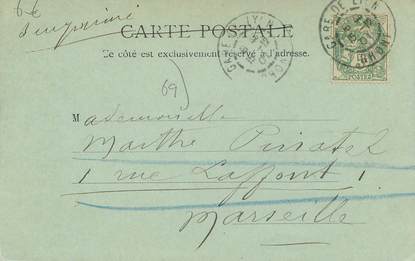 CARTE POSTALE
Ce côté est exclusivement réservé à l'adresse.
GARE DE LYON
GARE DE LYON
POSTES
69
Mademoiselle
Marthe
1 rue Laffont 1
Marseille